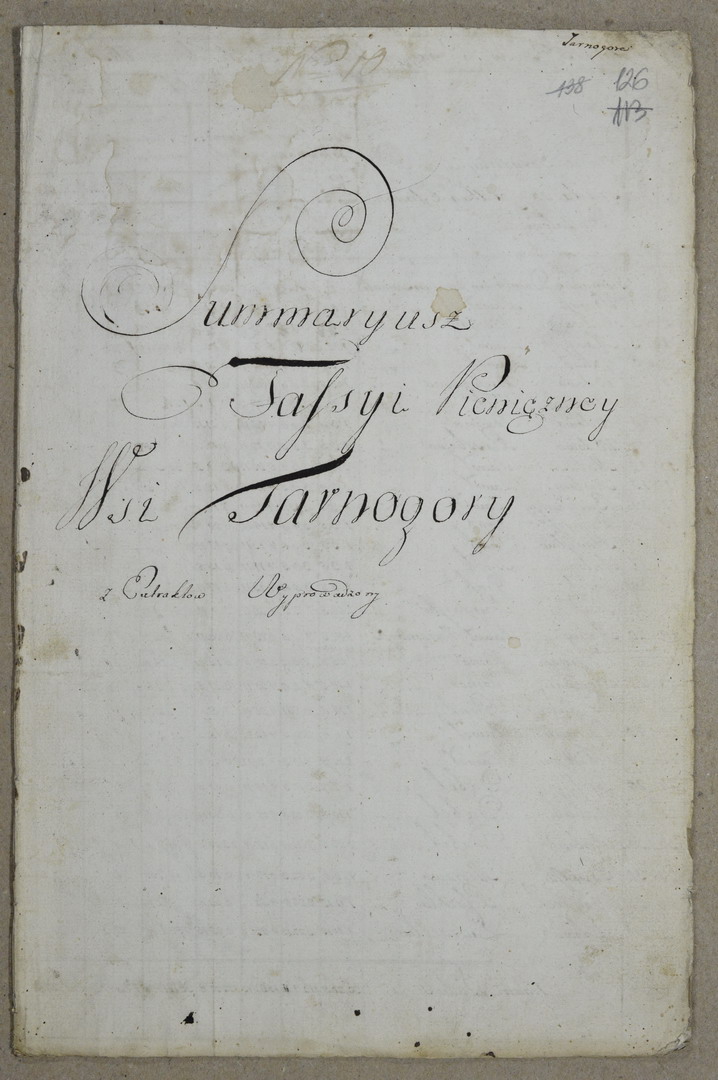 Tarnogora
No 19
138 126
113
Summaryusz
Fassyi Pieniężney
Wsi Tarnogory
z Extraktow Wyprowadzony